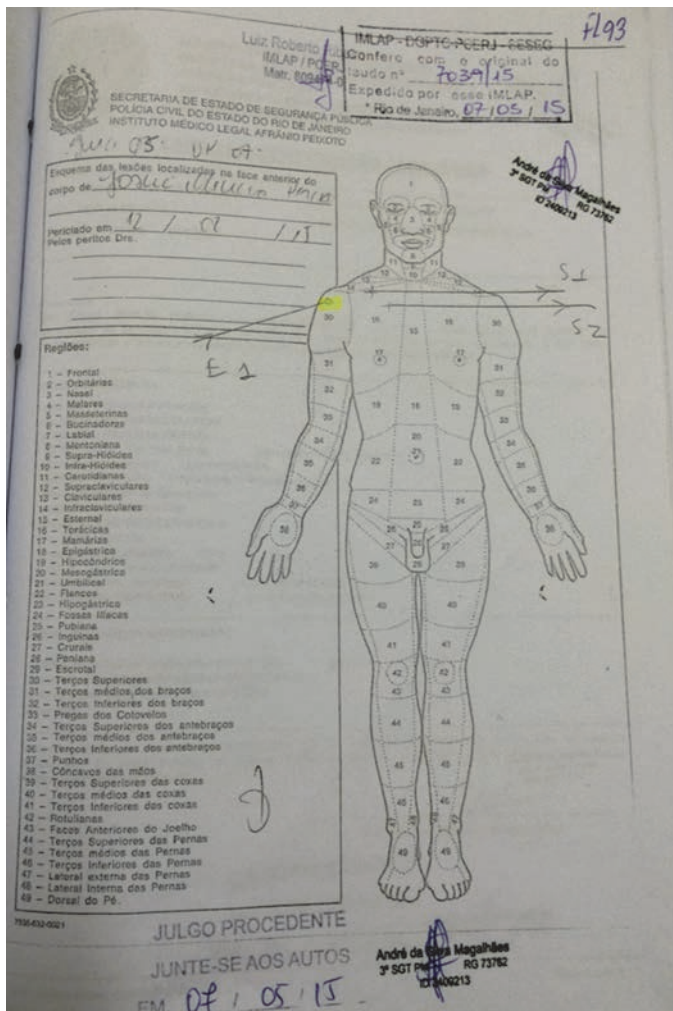 Fl 93
Luiz Roberto
IMLAP / PCER
Matr.
IMLAP - DGPTC-PCERJ - SESEG
Confere com o original do
laudo nº 7039/15
Expedido por esse IMLAP.
Rio de Janeiro, 07/05/15
SECRETARIA DE ESTADO DE SEGURANÇA PÚBLICA
POLÍCIA CIVIL DO ESTADO DO RIO DE JANEIRO
INSTITUTO MÉDICO LEGAL AFRÂNIO PEIXOTO
Esquema das lesões localizadas na face anterior do
corpo de
Periciado em 12 / /15
Pelos peritos Drs.
André da Silva Magalhães
3º SGT PM RG 73762
ID 2409213
S1
S2
E 1
Regiões:
1 – Frontal
2 – Orbitárias
3 – Nasal
4 – Malares
5 – Masseterinas
6 – Bucinadoras
7 – Labial
8 – Mentoniana
9 – Supra-Hióides
10 – Infra-Hióides
11 – Carotidianas
12 – Supraclaviculares
13 – Claviculares
14 – Infraclaviculares
15 – Esternal
16 – Torácicas
17 – Mamárias
18 – Epigástrica
19 – Hipocôndrios
20 – Mesogástrica
21 – Umbilical
22 – Flancos
23 – Hipogástrica
24 – Fossas Ilíacas
25 – Pubiana
26 – Inguinas
27 – Crurais
28 – Peniana
29 – Escrotal
30 – Terços Superiores
31 – Terços médios dos braços
32 – Terços Inferiores dos braços
33 – Pregas dos Cotovelos
34 – Terços Superiores dos antebraços
35 – Terços médios dos antebraços
36 – Terços Inferiores dos antebraços
37 – Punhos
38 – Côncavos das mãos
39 – Terços Superiores das coxas
40 – Terços médios das coxas
41 – Terços Inferiores das coxas
42 – Rotulianas
43 – Faces Anteriores do Joelho
44 – Terços Superiores das Pernas
45 – Terços médios das Pernas
46 – Terços Inferiores das Pernas
47 – Lateral externa das Pernas
48 – Lateral Interna das Pernas
49 – Dorsal do Pé.
JULGO PROCEDENTE
JUNTE-SE AOS AUTOS
EM 07 / 05 / 15
André da Silva Magalhães
3º SGT PM RG 73762
ID 2409213